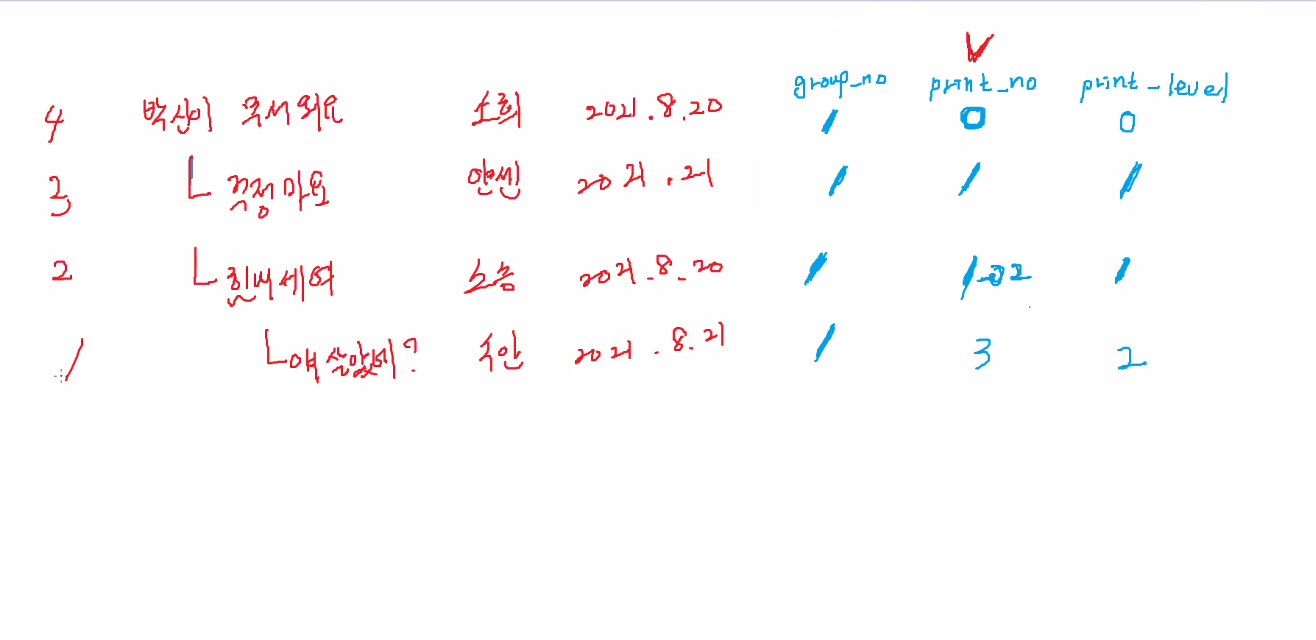 group_no print_no print_level
4 박산이 무서워요 소희 2021.8.20 1 0 0
3 ㄴ 걱정마요 안씬 2021.21 1 1 1
2 ㄴ 힘내세여 소승 2021.8.20 1 2 1
1 ㄴ 2021.8.21 1 3 2